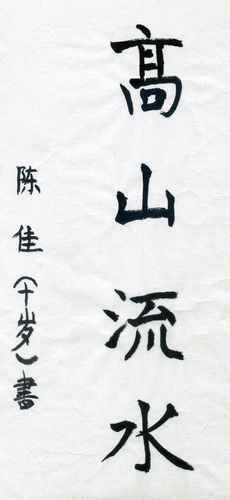 髙山流水
陈佳(十岁)書